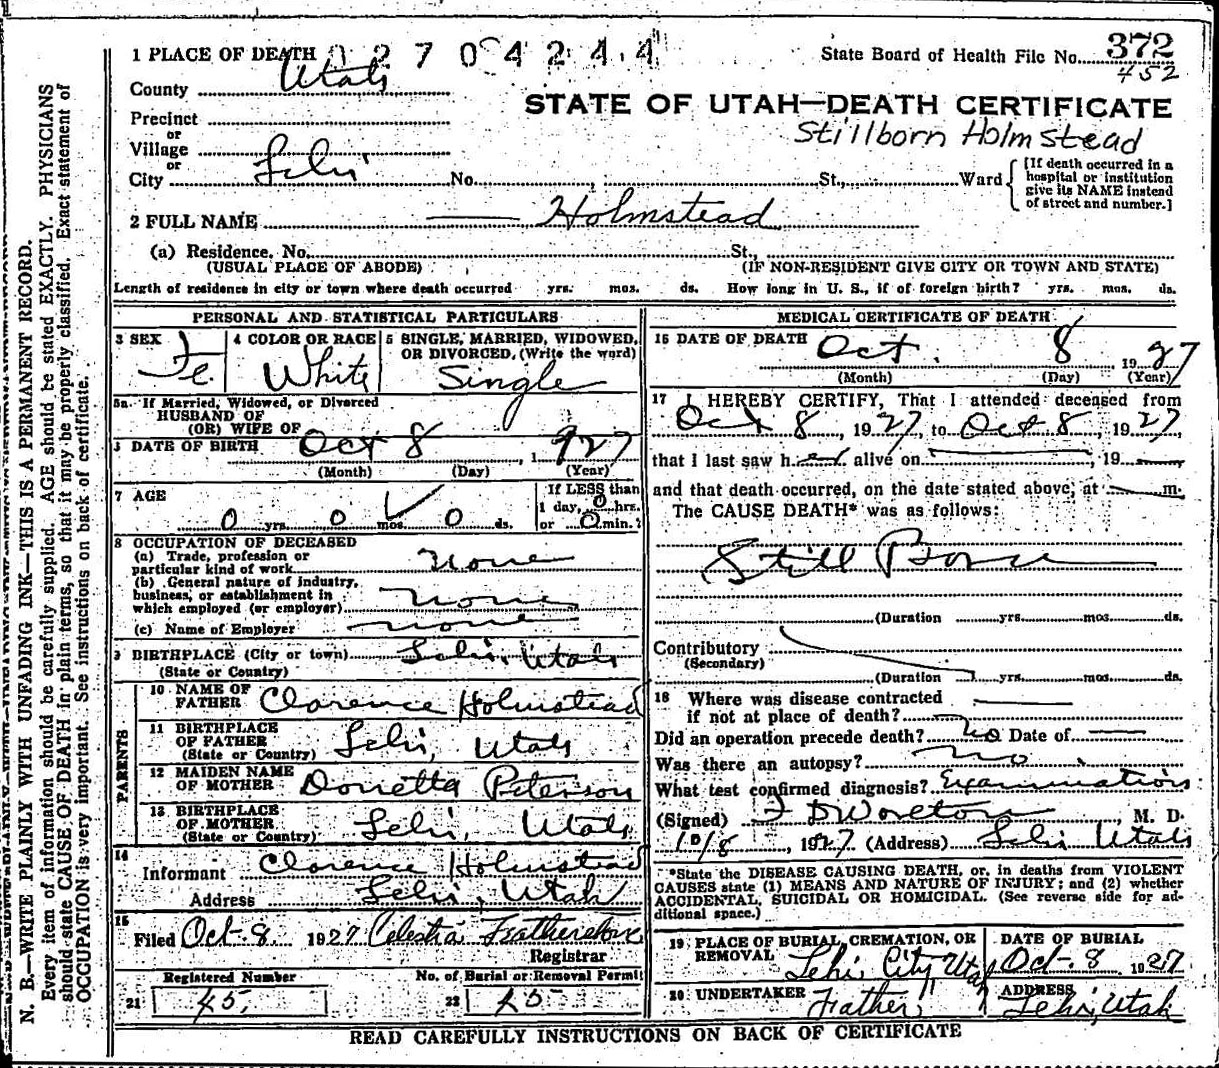 1 PLACE OF DEATH 0 2 7 0 4 2 4 4
State Board of Health File No. 372
452
County Utah
STATE OF UTAH—DEATH CERTIFICATE
Precinct
or
Village
or
City Lehi No. St., Ward
Stillborn Holmstead
[If death occurred in a
hospital or institution
give its NAME instead
of street and number.]
2 FULL NAME Holmstead
(a) Residence, No. St.,
(USUAL PLACE OF ABODE) (IF NON-RESIDENT GIVE CITY OR TOWN AND STATE)
Length of residence in city or town where death occurred yrs. mos. ds. How long in U. S., if of foreign birth? yrs. mos. ds.
PERSONAL AND STATISTICAL PARTICULARS
3 SEX Fe.
4 COLOR OR RACE White
5 SINGLE, MARRIED, WIDOWED,
OR DIVORCED, (Write the word)
Single
5a. If Married, Widowed, or Divorced
HUSBAND OF
(OR) WIFE OF
DATE OF BIRTH Oct 8, 1927
(Month) (Day) (Year)
7 AGE
0 yrs. 0 mos. 0 ds.
If LESS than
1 day, 0 hrs.
or 0 min.?
8 OCCUPATION OF DECEASED
(a) Trade, profession or
particular kind of work none
(b) General nature of industry,
business, or establishment in
which employed (or employer) none
(c) Name of Employer none
9 BIRTHPLACE (City or town) Lehi, Utah
(State or Country)
PARENTS
10 NAME OF
FATHER Clarence Holmstead
11 BIRTHPLACE
OF FATHER Lehi, Utah
(State or Country)
12 MAIDEN NAME
OF MOTHER Donetta Peterson
13 BIRTHPLACE
OF MOTHER Lehi, Utah
(State or Country)
14
Informant Clarence Holmstead
Address Lehi, Utah
15
Filed Oct. 8 1927 Celestia Featherstone
Registrar
Registered Number No. of Burial or Removal Permit
21 45 22 45
MEDICAL CERTIFICATE OF DEATH
16 DATE OF DEATH Oct. 8 1927
(Month) (Day) (Year)
17 I HEREBY CERTIFY, That I attended deceased from
Oct 8, 1927, to Oct 8, 1927,
that I last saw her alive on , 19
and that death occurred, on the date stated above, at m.
The CAUSE DEATH* was as follows:
Still Born
(Duration yrs. mos. ds.
Contributory
(Secondary)
(Duration yrs. mos. ds.
18 Where was disease contracted
if not at place of death?
Did an operation precede death? no Date of
Was there an autopsy? no
What test confirmed diagnosis? Examination
(Signed) F D Worlton, M. D.
10/8, 1927 (Address) Lehi Utah
*State the DISEASE CAUSING DEATH, or, in deaths from VIOLENT
CAUSES state (1) MEANS AND NATURE OF INJURY; and (2) whether
ACCIDENTAL, SUICIDAL OR HOMICIDAL. (See reverse side for ad-
ditional space.)
19 PLACE OF BURIAL, CREMATION, OR
REMOVAL Lehi City, Utah
DATE OF BURIAL
Oct. 8 1927
20 UNDERTAKER Father
ADDRESS
Lehi, Utah
READ CAREFULLY INSTRUCTIONS ON BACK OF CERTIFICATE
N. B.—WRITE PLAINLY WITH UNFADING INK—THIS IS A PERMANENT RECORD.
Every item of information should be carefully supplied. AGE should be stated EXACTLY. PHYSICIANS
should state CAUSE OF DEATH in plain terms, so that it may be properly classified. Exact statement of
OCCUPATION is very important. See instructions on back of certificate.